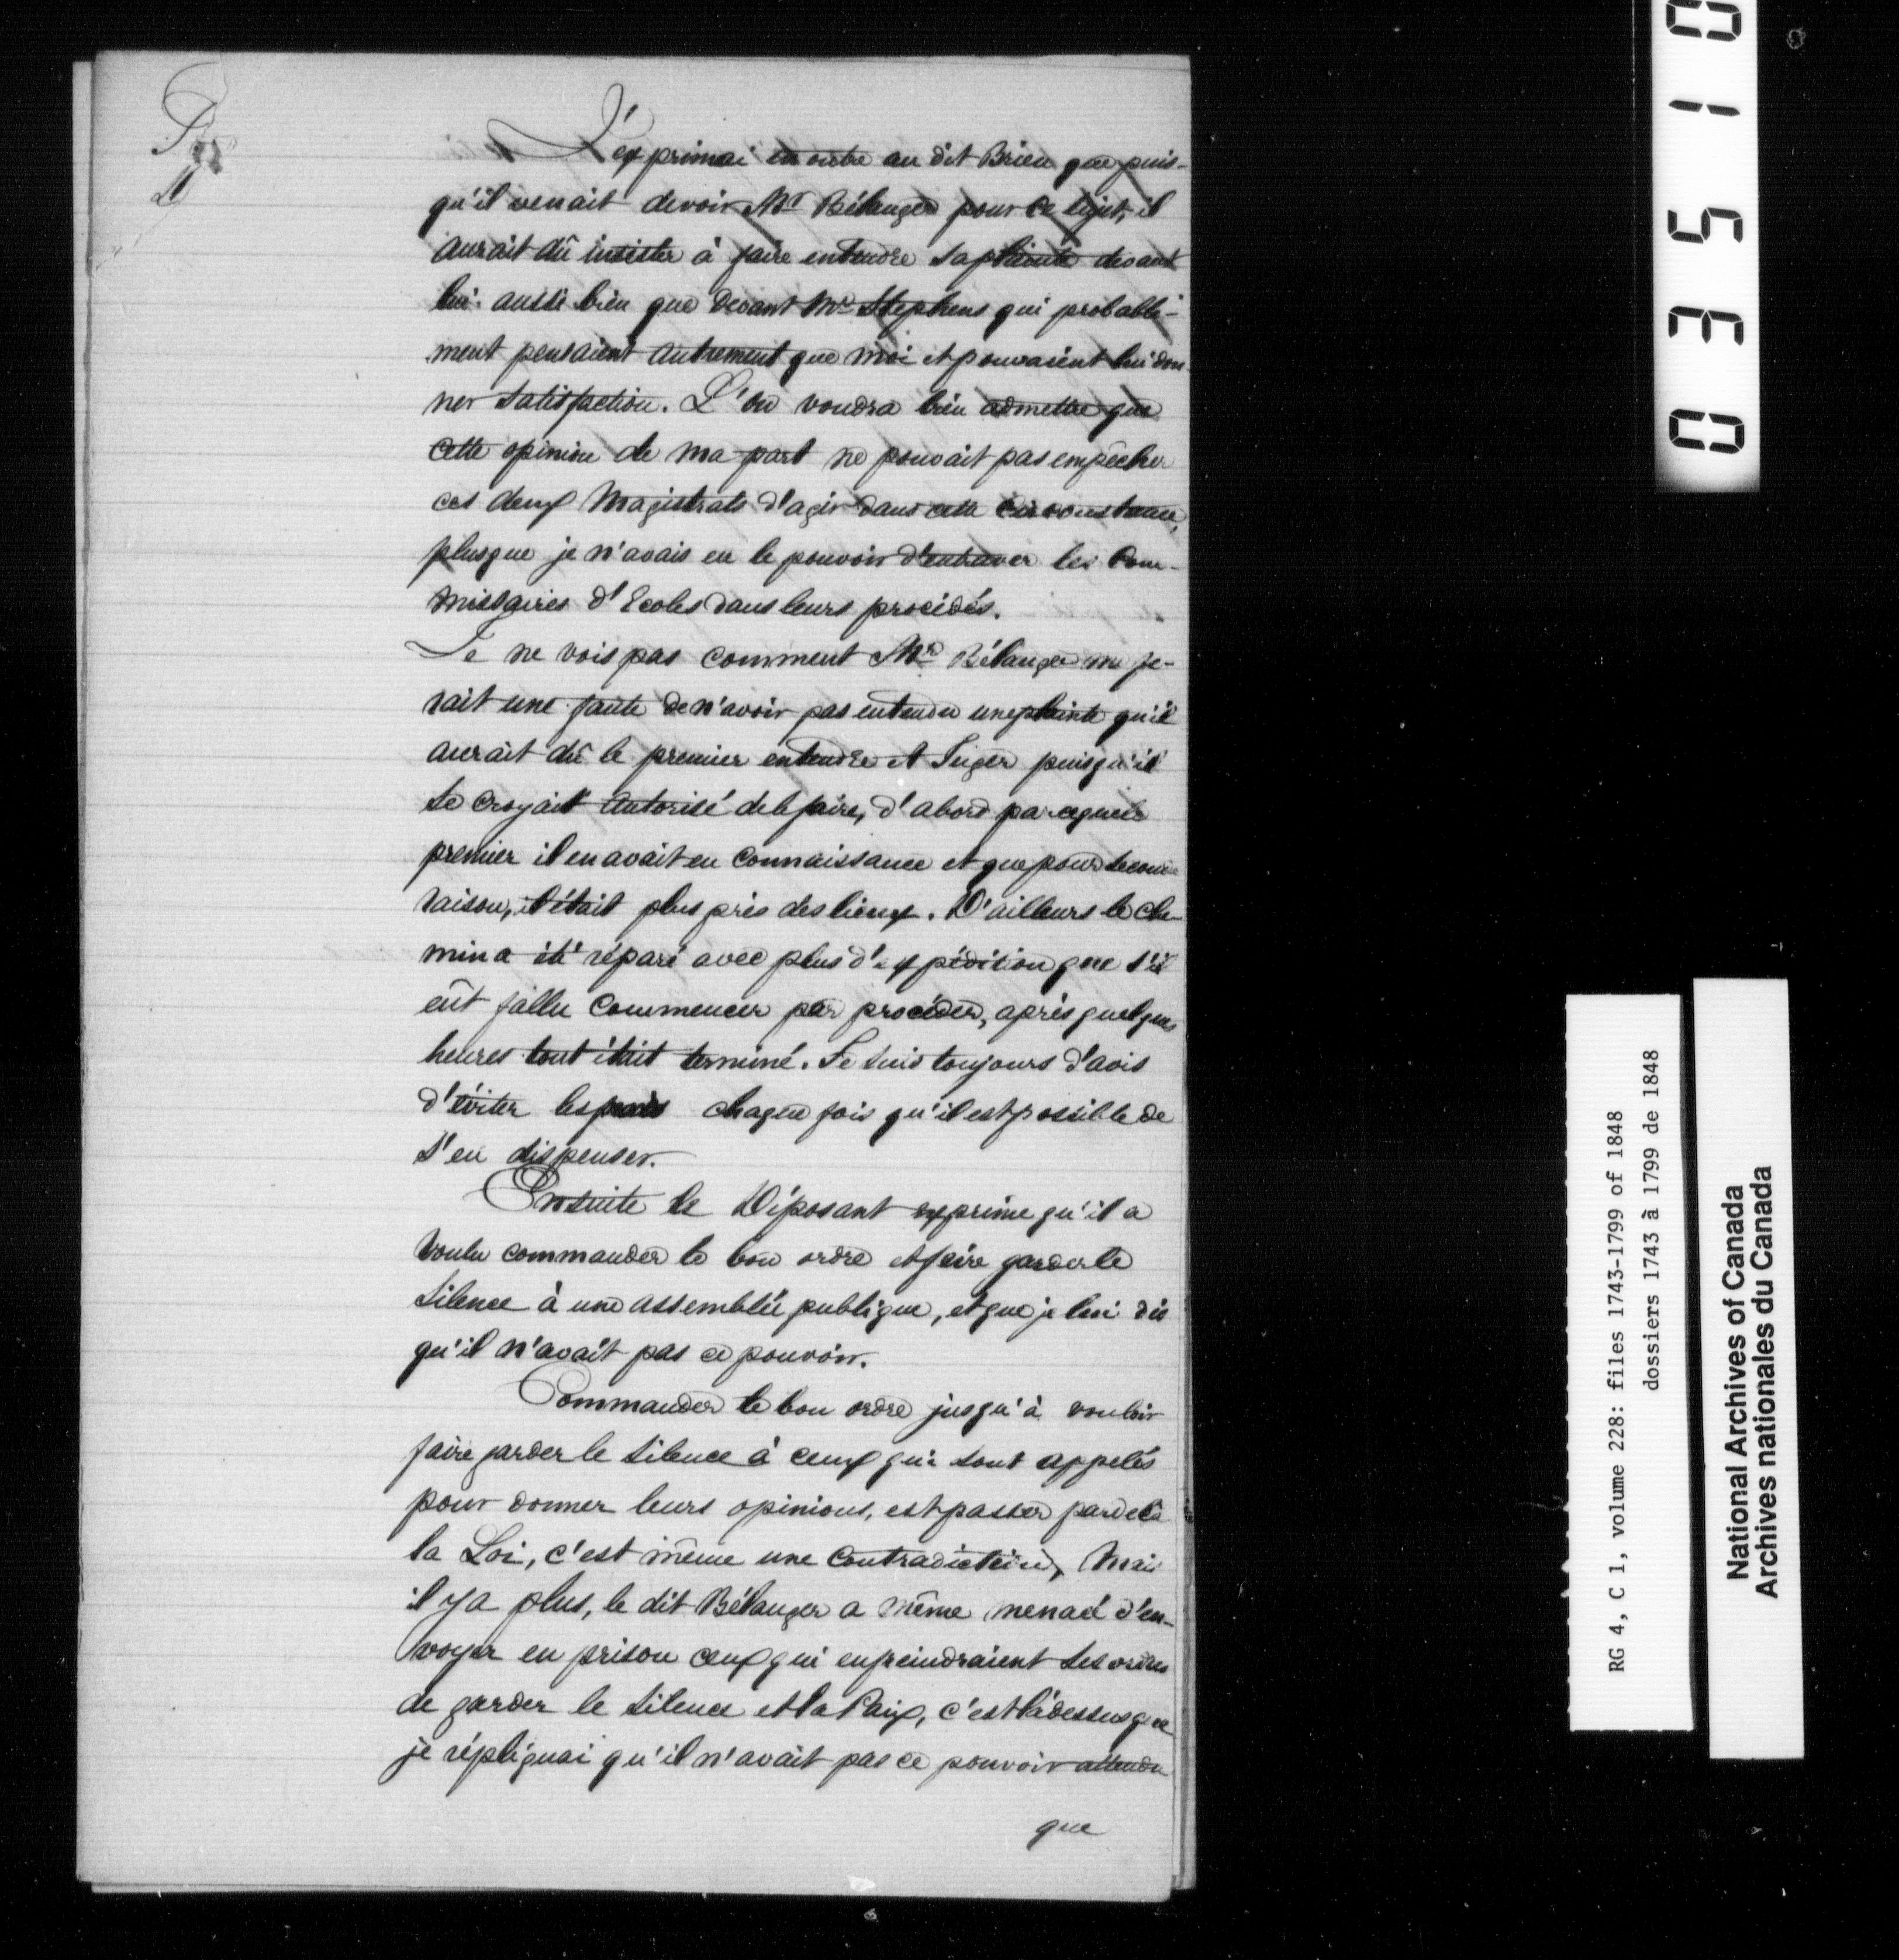 J'exprimai en outre au dit Brien que puis-
qu'il venait devoir Mr Bélanger pour ce sujet, il
aurait dû insister à faire entendre sa plainte devant
lui aussi bien que devant Mr Stephens qui probable-
ment pensaient autrement que moi et pouvaient lui don-
ner satisfaction. L'on voudra bien admettre que
cette opinion de ma part ne pouvait pas empêcher
ces deux Magistrats d'agir dans cette circonstance,
plusque je n'avais eu le pouvoir d'entraver les Com-
missaires d'Ecoles dans leurs procédés.
Je ne vois pas comment Mr Bélanger me fe-
rait une faute de n'avoir pas entendu une plainte qu'il
aurait dû le premier entendre et Juger puisqu'il
se croyait autorisé de le faire, d'abord parceque le
premier il en avait eu connaissance et que pour seconde
raison, il était plus près des lieux. D'ailleurs le che-
min a été réparé avec plus d'expédition que s'il
eût fallu commencer par procéder, après quelques
heures tout était terminé. Je suis toujours d'avis
d'éviter les frais chaque fois qu'il est possible de
s'en dispenser.
Ensuite le Déposant exprime qu'il a
voulu commander le bon ordre et faire garder le
silence à une assemblée publique, et que je lui dis
qu'il n'avait pas ce pouvoir.
Commander le bon ordre jusqu'à vouloir
faire garder le silence à ceux qui sont appelés
pour donner leurs opinions, est passer pardelà
la Loi, c'est même une contradiction, Mais
il y a plus, le dit Bélanger a même menacé d'en-
voyer en prison ceux qui enfreindraient ses ordres
de garder le silence et la Paix, c'est làdessus que
je répliquai qu'il n'avait pas ce pouvoir attendu
que
0 3 5 1 0
RG 4, C 1, volume 228: files 1743-1799 of 1848
dossiers 1743 à 1799 de 1848
National Archives of Canada
Archives nationales du Canada